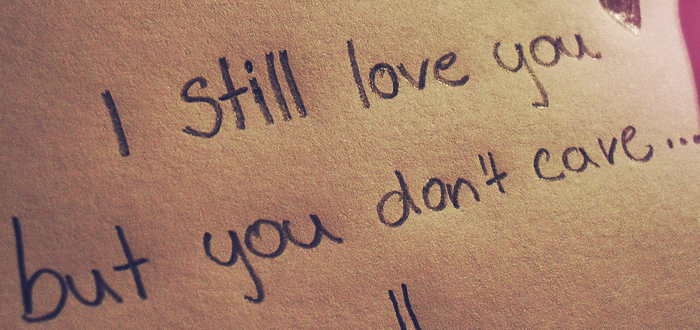 I still love you
but you don't care...